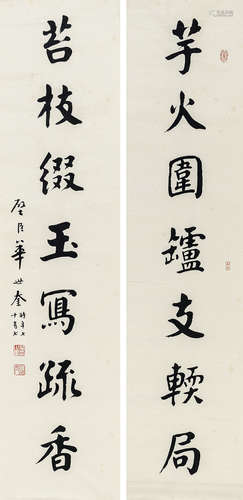 芋火圍罏支輭局
苔枝綴玉寫疏香
璧臣華世奎時年七
十有七